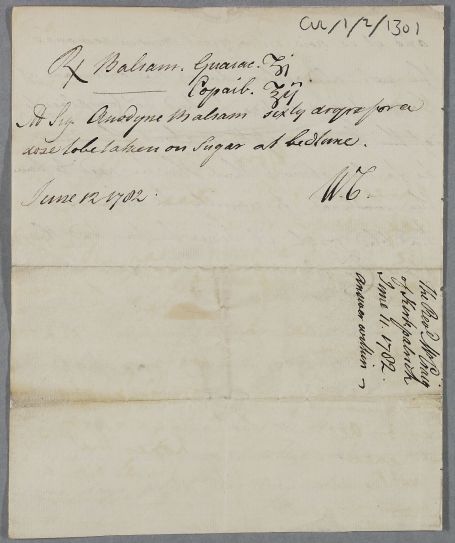 CUL/1/2/1301
℞ Balsam. Guaiac. ℥j
Copaib. ℥ij
M Sig. Anodyne Balsam sixty drops for a
dose to be taken on Sugar at bedtime.
June 12 1782.
W.C.
The Revd Mr
Craig
of Kirkpatrick
June 11. 1782.
answer within